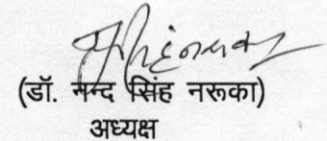 (डॉ. नन्द सिंह नरूका)
अध्यक्ष